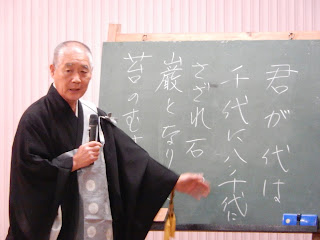 君が代は
千代に八千代に
さざれ石
巌となり
苔のむす